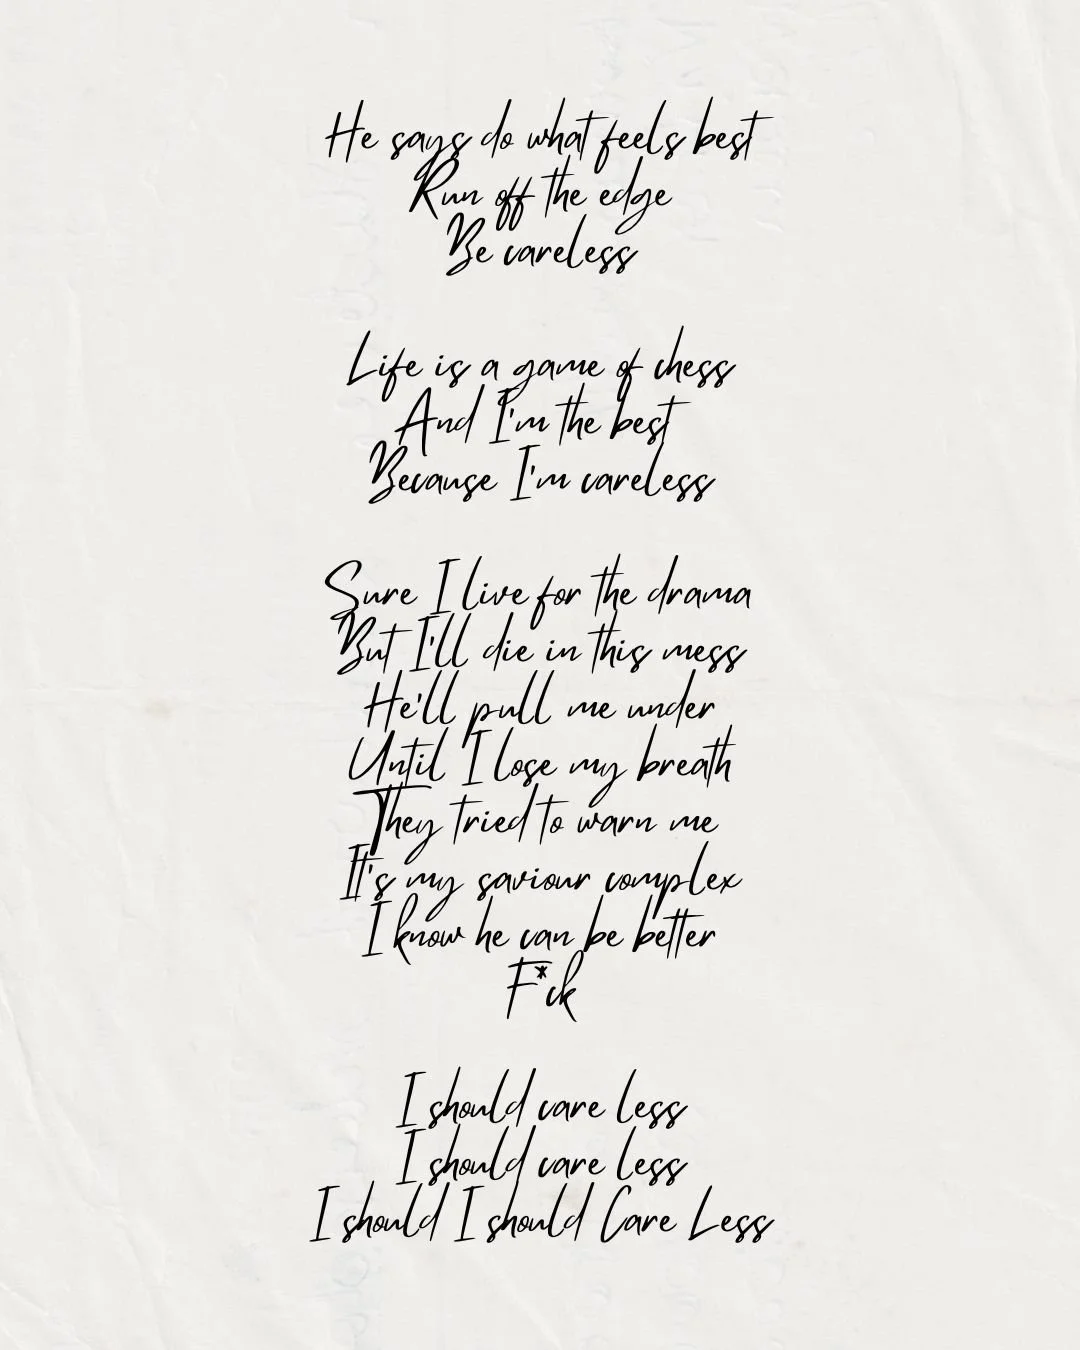 He says do what feels best
Run off the edge
Be careless
Life is a game of chess
And I'm the best
Because I'm careless
Sure I live for the drama
But I'll die in this mess
He'll pull me under
Until I lose my breath
They tried to warn me
It's my saviour complex
I know he can be better
F*ck
I should care less
I should care less
I should I should Care Less